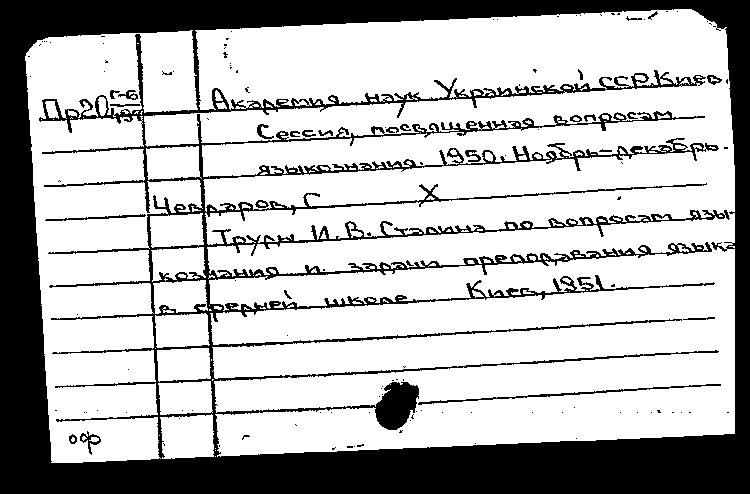 Пр20 Г-6/494 Академия наук Украинской ССР. Киев.
Сессия, посвященная вопросам
языкознания. 1950. Ноябрь-декабрь.
Чевдаров, С X
Труды И. В. Сталина по вопросам язы-
кознания и задачи преподавания языка
в средней школе. Киев, 1951.
оф